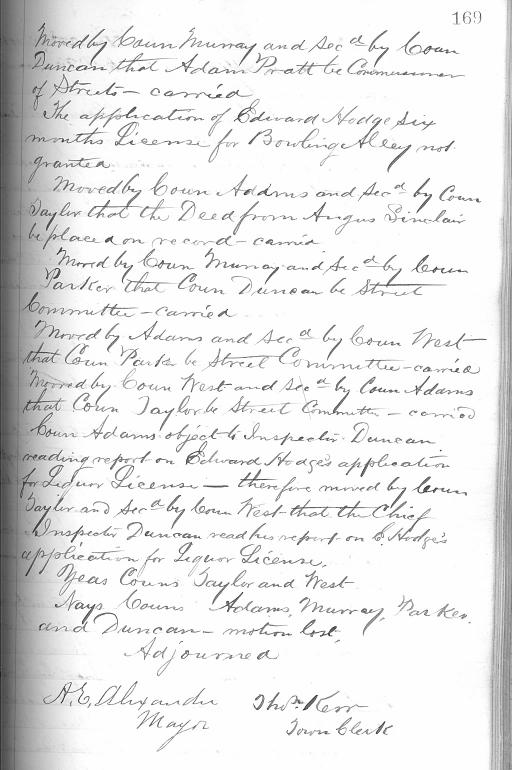 169
Moved by Coun Murray and Secd by Coun
Duncan that Adam Pratt be Commissioner
of Streets – carried
The application of Edward Hodge six
months License for Bowling Alley not
granted
Moved by Coun Addms and Secd by Coun
Taylor that the Deed from Angus Sinclair
be placed on record – carried
Moved by Coun Murray and Secd by Coun
Parker that Coun Duncan be Street
Committee – carried
Moved by Adams and Secd by Coun West
that Coun Parker be Street Committee – carried
Moved by Coun West and Secd by Coun Adams
that Coun Taylor be Street Committee – carried
Coun Adams object to Inspector Duncan
reading report on Edward Hodge's application
for Liquor License – therefore moved by Coun
Taylor and Secd by Coun West that the Chief
Inspector Duncan read his report on E. Hodge's
application for Liquor License.
Yeas Couns Taylor and West
Nays Couns Adams, Murray, Parker,
and Duncan – motion lost.
Adjourned
A. E. Alexander Thos Kerr
Mayor Town Clerk